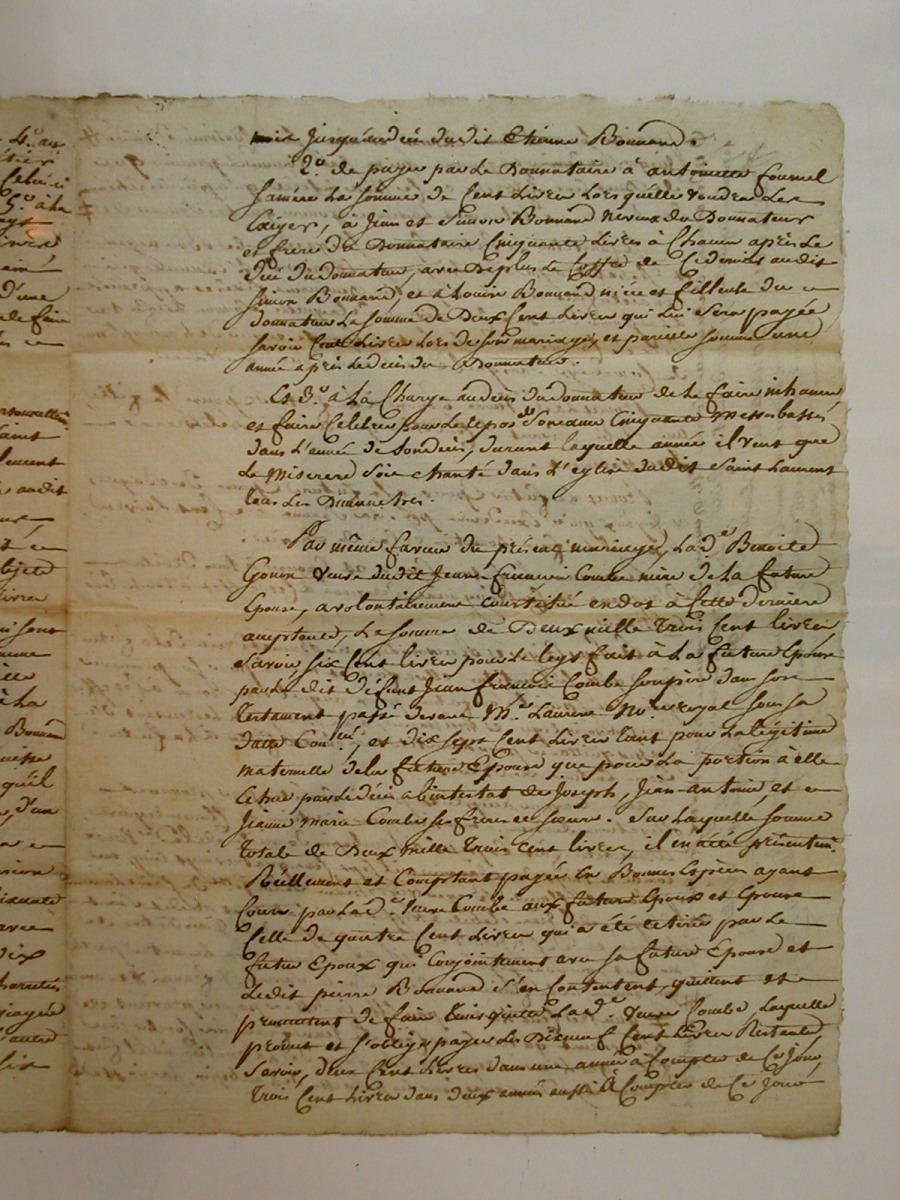 4.° au
Celui-ci
5.° à la
d'une
de faire
audit
objets
livres
sont
à la
Bonnand
qu'il
d'un
avec
dix
jusqu'au décès dudit Etienne Bonnand.
2.° de payer par le Donnataire à antoinette fournel
sa mère la somme de Cent Livres Lorsqu'elle viendra Les
Exiger, à Jean et Simon Bonnand neveux du Donnateur
et frères du Donnataire Cinquante Livres à Chacun après Le
décès du donnateur, avec Deplus Le Coffre de Ce dernier audit
Simon Bonnand, et à Louise Bonnand niéce et filleule du
donnateur La somme de Deux Cent Livres qui Lui sera payée
savoir Cent Livres Lors de son mariage, et pareille somme une
année après Le décès du Donnateur.
Et 3.° à La Charge au décès du donnateur de Le faire inhumer
et faire Celebrer pour Le repos de Son ame Cinquante Messes basses
dans L'année de Son décès, durant laquelle année il veut que
Le Miserere Soit chanté dans L'eglise dudit Saint Laurent
tous Les Dimanches.
Par même faveur du présent mariage, La d.e Benoite
Gonon Veuve dudit Jean-François Combe mère de La future
Epouse, a volontairement constitué en dot à Cette derniere
acceptante, La somme de Deux mille trois Cent livres
savoir six Cent livres pour Le legs fait à La future Epouse
par Le dit défunt Jean François Combe son père dans son
testament passé devant M.e Laurent No.re royal sous sa
datte Con.lée, et dix sept Cent Livres tant pour La légitime
maternelle de la future Epouse que pour La portion à elle
échue par Le décès abintestat de Joseph, Jean-antoine, et
Jeanne Marie Combe ses freres et sœur. Sur Laquelle somme
totale de Deux mille trois Cent livres, il en a été présentem.t
Réellement et Comptant payée En Bonnes Espèces ayant
Cours par La d.e Veuve Combe aux future Epoux et Epouse
Celle de quatre Cent Livres qui a été retirée par Le
futur Epoux qui Conjointement avec sa future Epouse et
Ledit pierre Bonnand s'en Contentent, quittent et
promettent de faire tenir quitte La d.e Veuve Combe, Laquelle
promet et s'oblige payer Les Dixneuf Cent Livres Restantes,
Savoir, deux Cent Livres dans une année à Compter de Ce jour,
trois Cent Livres dans deux années aussi à Compter de Ce Jour